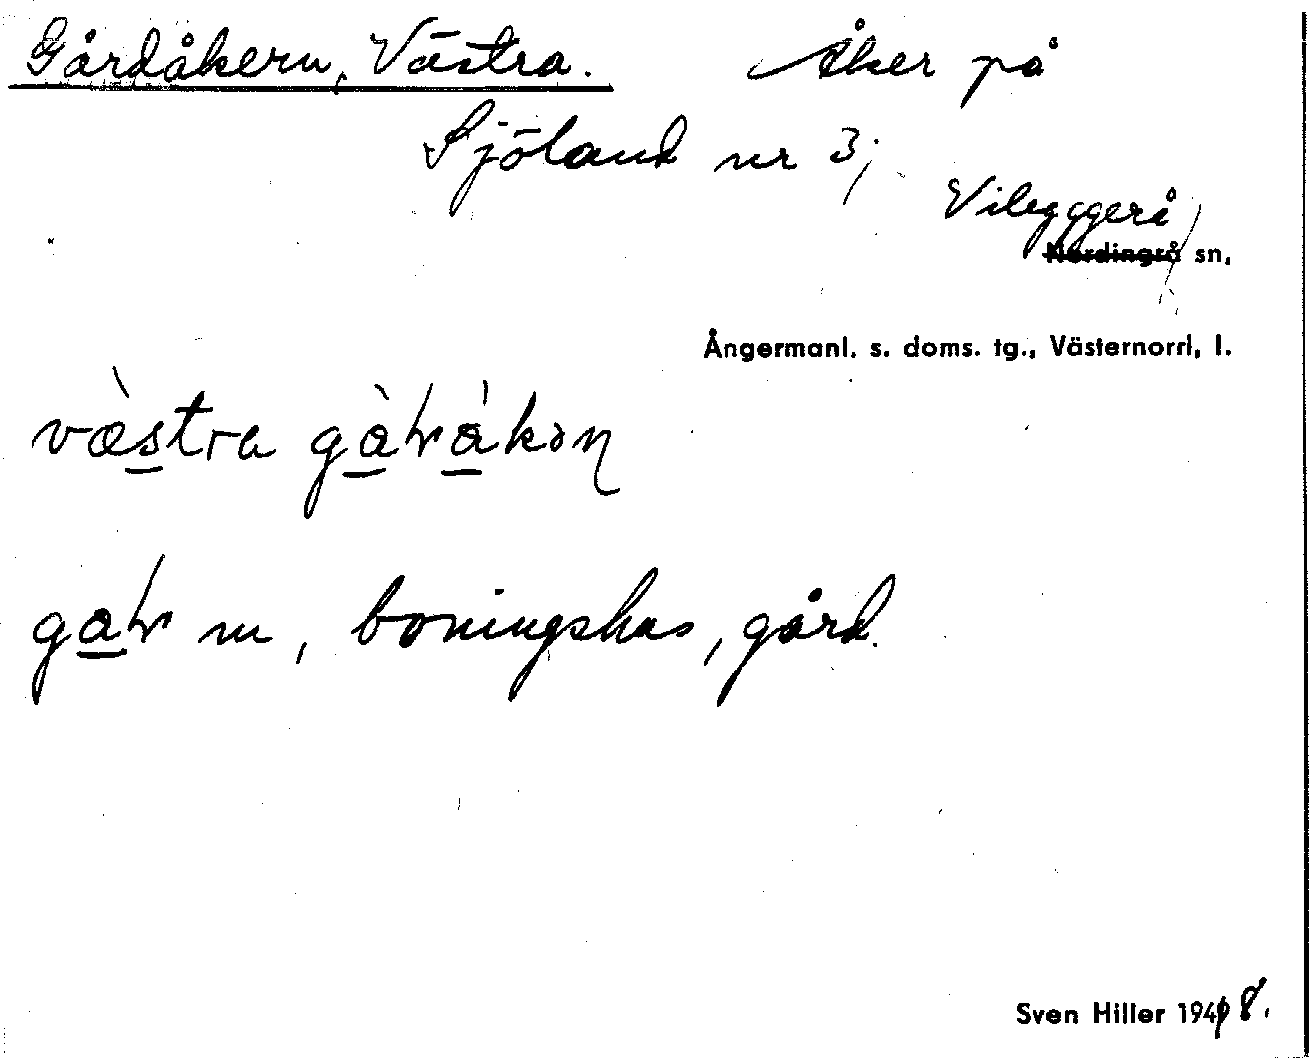 Gårdåkern, Västra. Åker på
Sjöland nr 3;
Vibyggerå
Nordingrå sn,
Ångermanl. s. doms. tg., Västernorrl. l.
boningshus, gård.
Sven Hiller 1948.